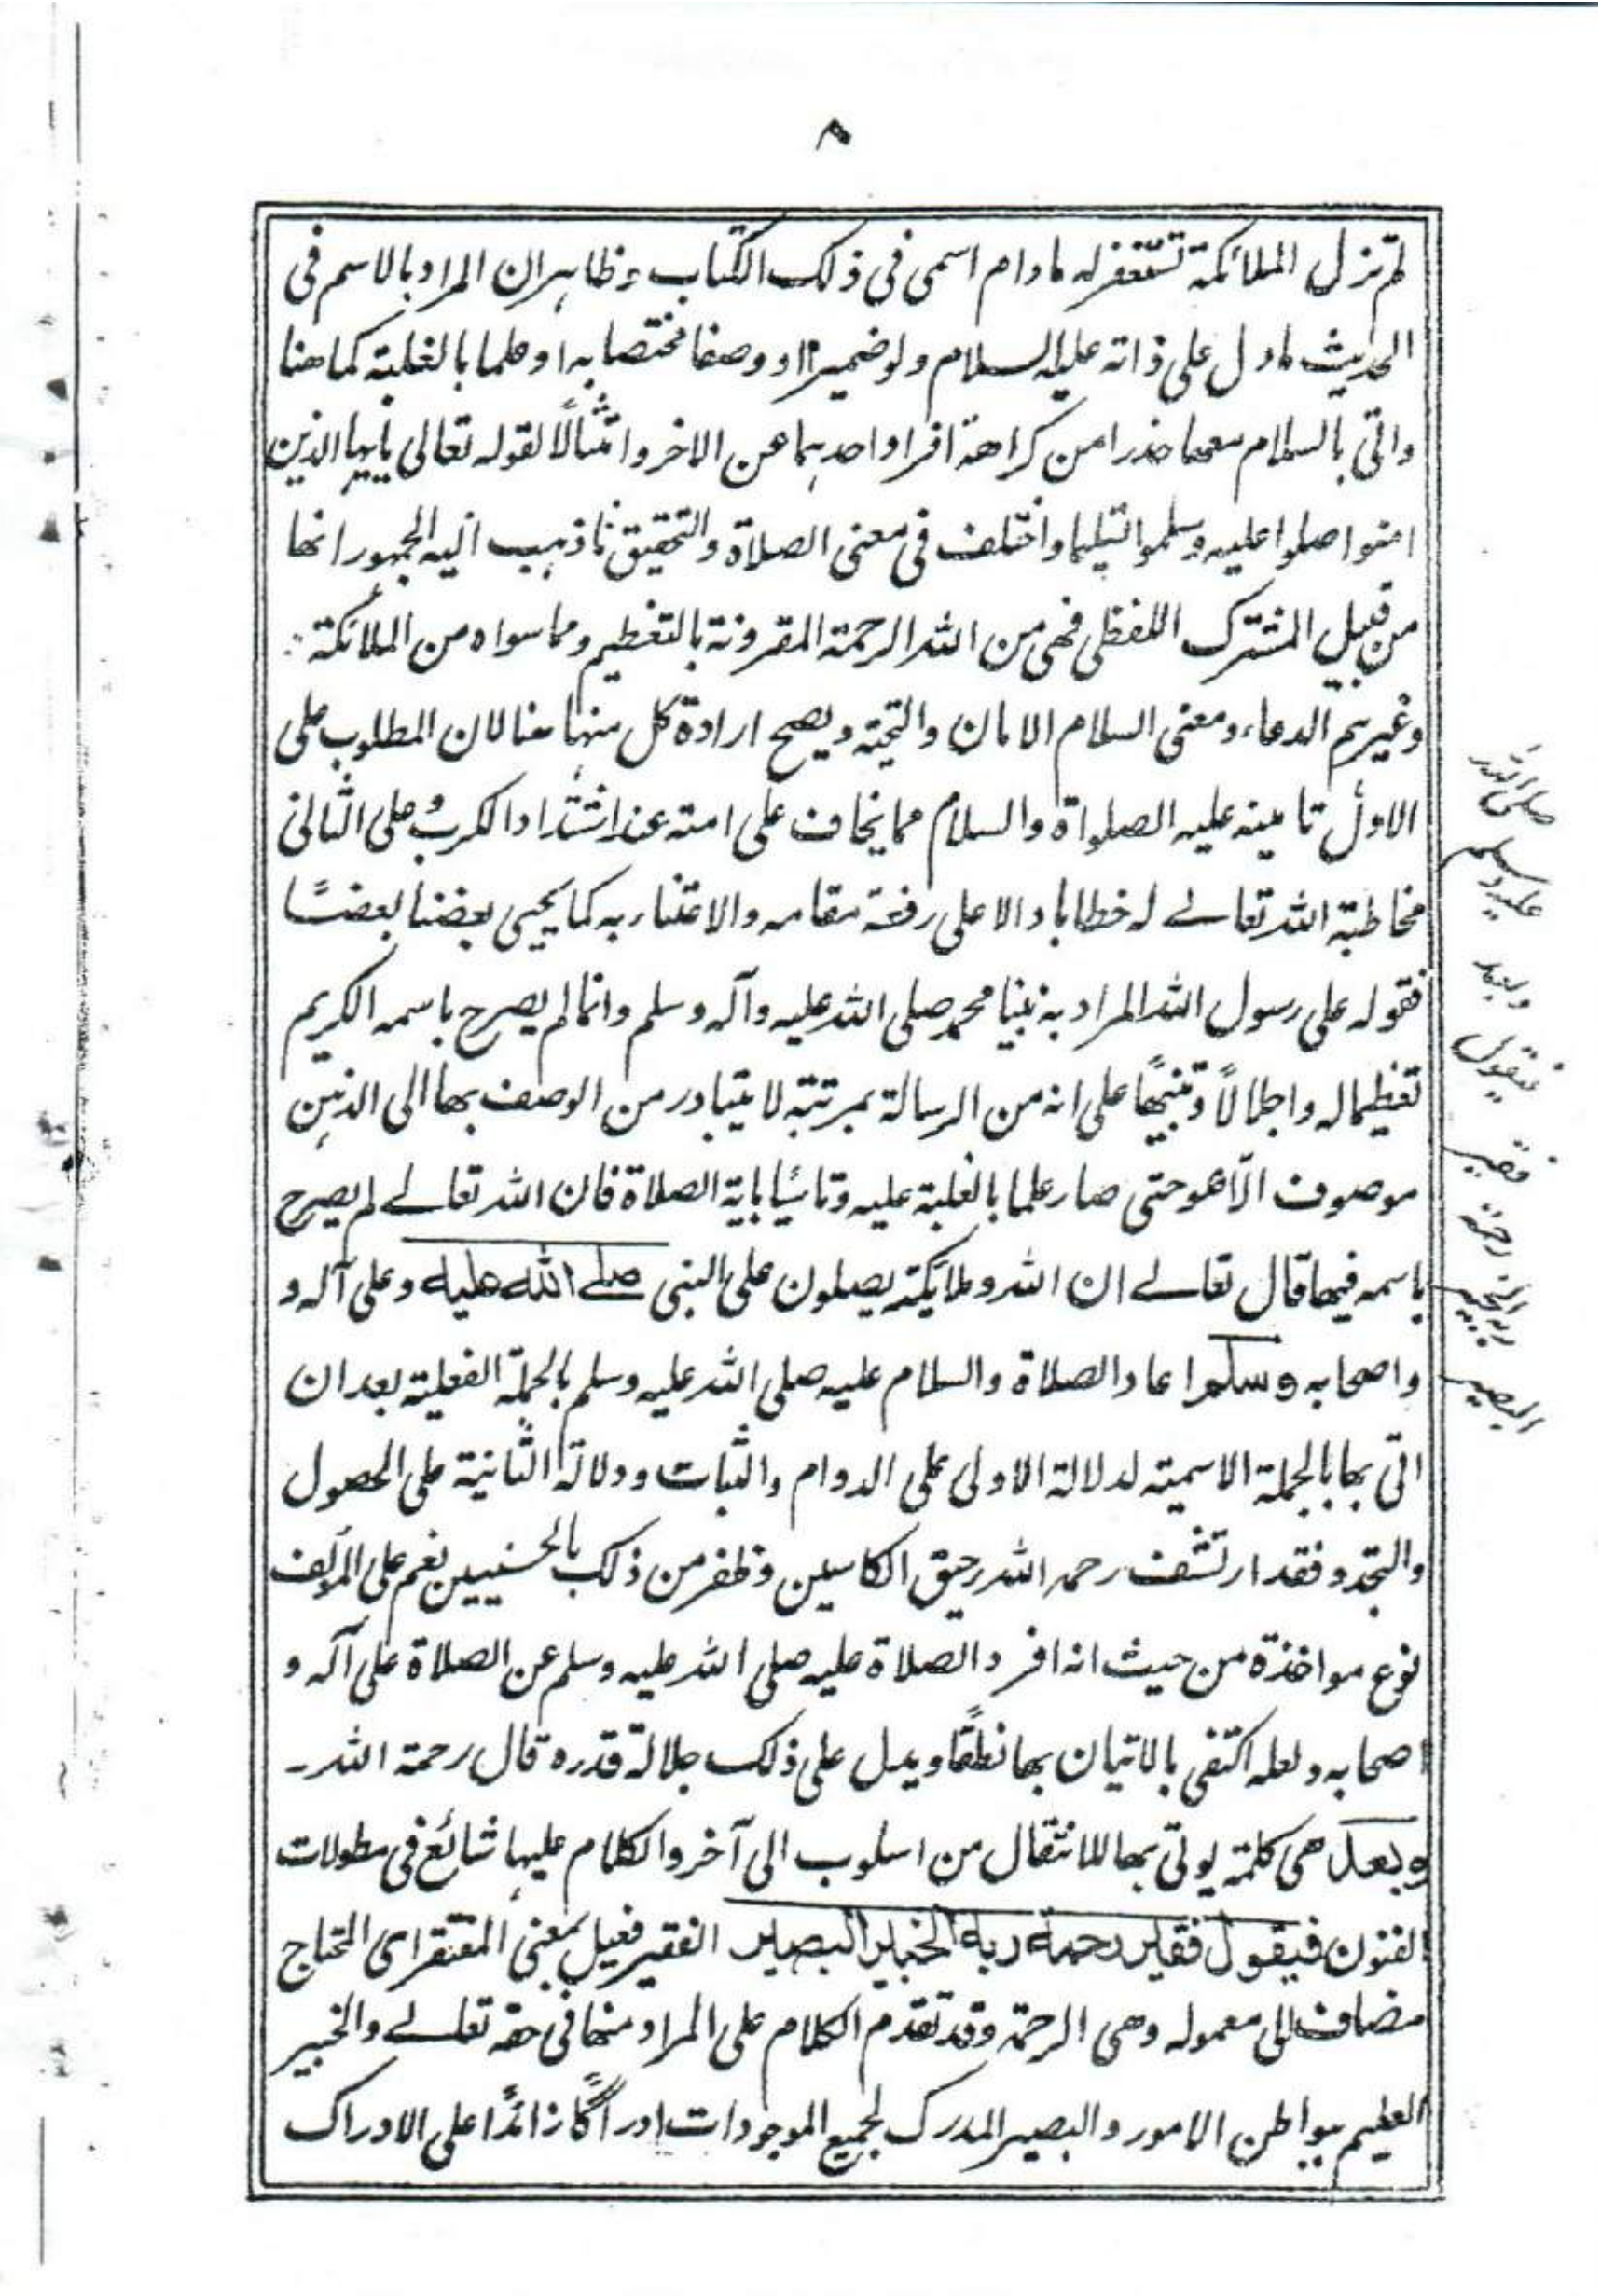 ٨
لم تزل الملائكة تستغفر له مادام اسمى فى ذلك الكتاب وظاهر ان المراد بالاسم فى
الحديث مادل على ذاته عليه السلام ولو ضميرا او وصفا مختصا به او علما بالغلبة كما هنا
واتى بالسلام معها حذرا من كراهة افراد احدهما عن الاخر وامتثالًا لقوله تعالى يايها الذين
امنوا صلوا عليه وسلموا تسليما واختلف فى معنى الصلاة والتحقيق ما ذهب اليه الجمهور انها
من قبيل المشترك اللفظى فهى من الله الرحمة المقرونة بالتعظيم ومما سواه من الملائكة
وغيرهم الدعاء ومعنى السلام الامان والتحية ويصح ارادة كل منهما هنا لان المطلوب على
الاول تامينه عليه الصلواة والسلام مما يخاف على امته عند اشتداد الكرب وعلى الثانى
مخاطبة الله تعالے له خطابا دالا على رفعة مقامه والاعتناء به كما يحيى بعضنا بعضًا
فقوله على رسول الله المراد به نبينا محمد صلى الله عليه وآله وسلم وانما لم يصرح باسمه الكريم
تعظيما له واجلالًا وتنبيهًا على انه من الرسالة بمرتبة لا يتبادر من الوصف بها الى الذهن
موصوف الّا هو حتى صار علما بالغلبة عليه وتاسّيا باية الصلاة فان الله تعالے لم يصرح
باسمه فيها قال تعالے ان الله وملايكته يصلون على النبى صلے الله عليه وعلى آله و
واصحابه وسلم اعاد الصلاة والسلام عليه صلى الله عليه وسلم بالجملة الفعلية بعد ان
اتى بها بالجملة الاسمية لدلالة الاولى على الدوام والثبات ودلالة الثانية على الحصول
والتجدد فقد ارتشف رحمه الله رحيق الكاسين وظفر من ذلك بالحسنيين نعم على المؤلف
نوع مواخذة من حيث انه افرد الصلاة عليه صلى الله عليه وسلم عن الصلاة على آله و
اصحابه ولعله اكتفى بالاتيان بها نطقًا ويدل على ذلك جلالة قدره قال رحمة الله۔
وبعد هى كلمة يوتى بها للانتقال من اسلوب الى آخر والكلام عليها شائع فى مطولات
الفنون فيقول فقير رحمة ربه الخبير البصير الفقير فعيل بمعنى المفتقر اى المحتاج
مضاف الى معموله وهى الرحمة وقد تقدم الكلام على المراد منها فى حقه تعالے والخبير
العليم ببواطن الامور والبصير المدرك لجميع الموجودات ادراكًا زائدًا على الادراك
صلى الله
عليه وسلم
وبعد
فيقول
فقير
رحمة
ربه الخبير
البصير